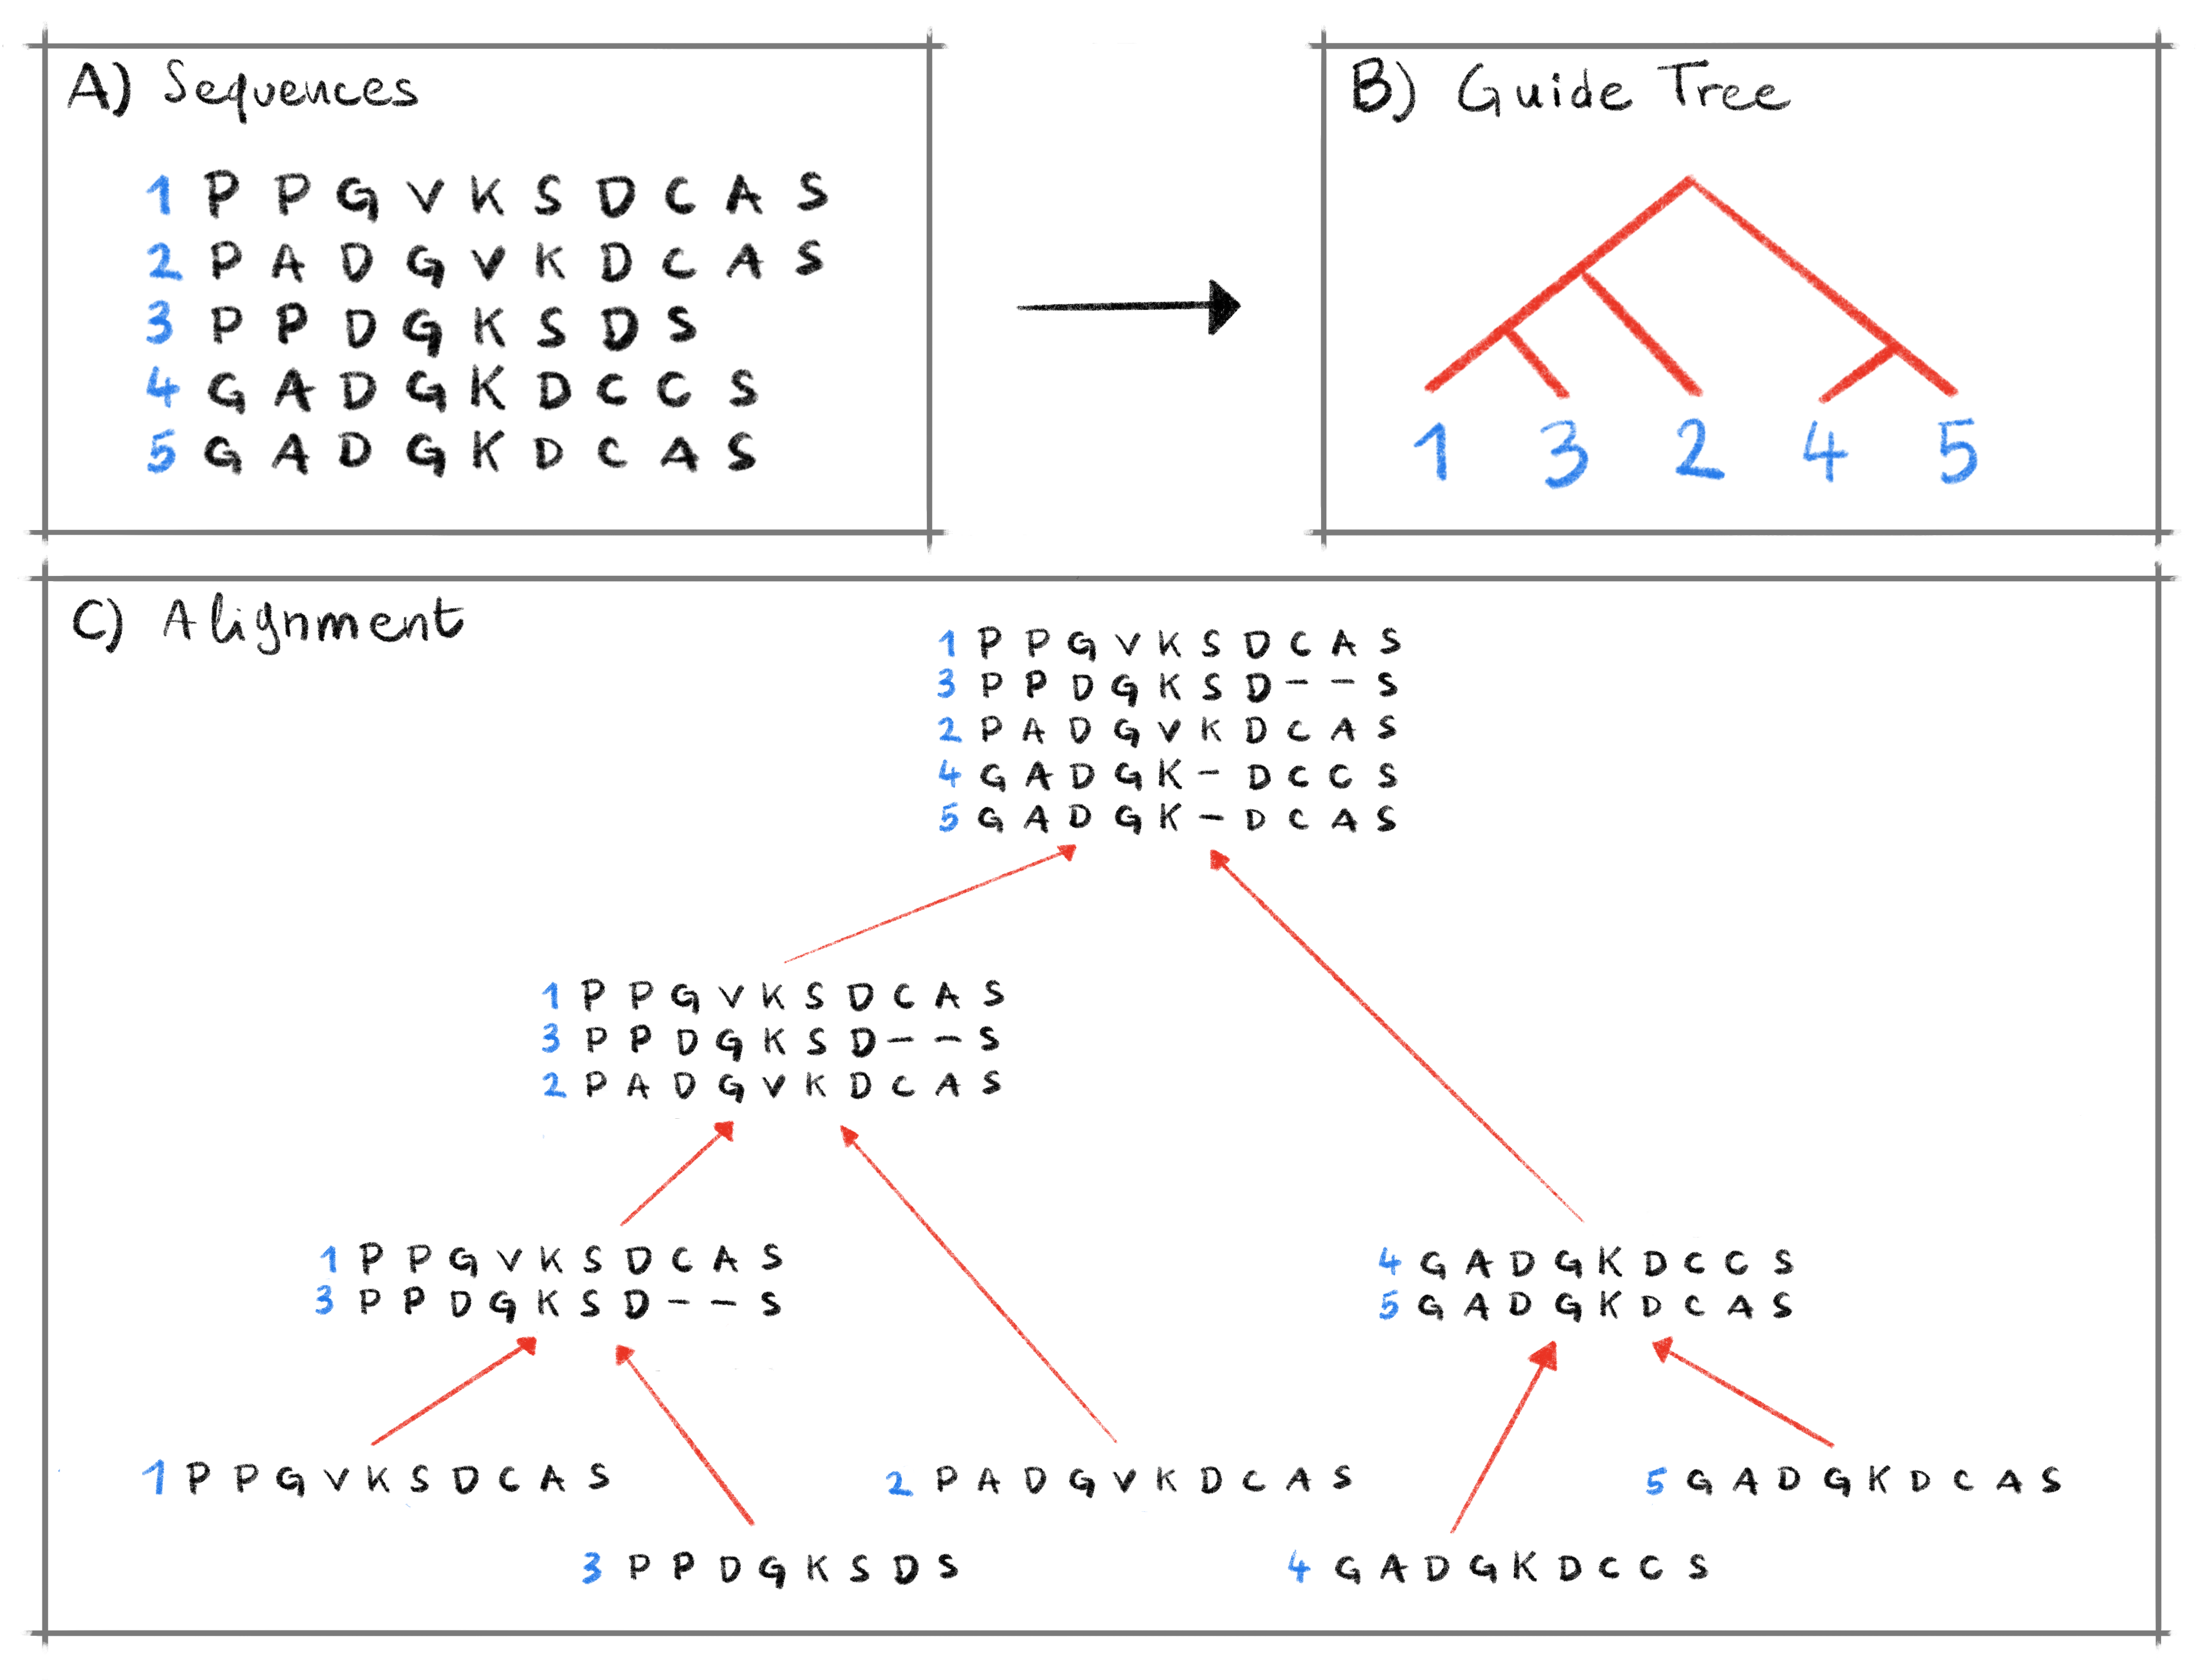 A) Sequences
1 P P G V K S D C A S
2 P A D G V K D C A S
3 P P D G K S D S
4 G A D G K D C C S
5 G A D G K D C A S
B) Guide Tree
1 3 2 4 5
C) Alignment
1 P P G V K S D C A S
3 P P D G K S D - - S
2 P A D G V K D C A S
4 G A D G K - D C C S
5 G A D G K - D C A S
1 P P G V K S D C A S
3 P P D G K S D - - S
2 P A D G V K D C A S
1 P P G V K S D C A S
3 P P D G K S D - - S
4 G A D G K D C C S
5 G A D G K D C A S
1 P P G V K S D C A S
2 P A D G V K D C A S
5 G A D G K D C A S
3 P P D G K S D S
4 G A D G K D C C S